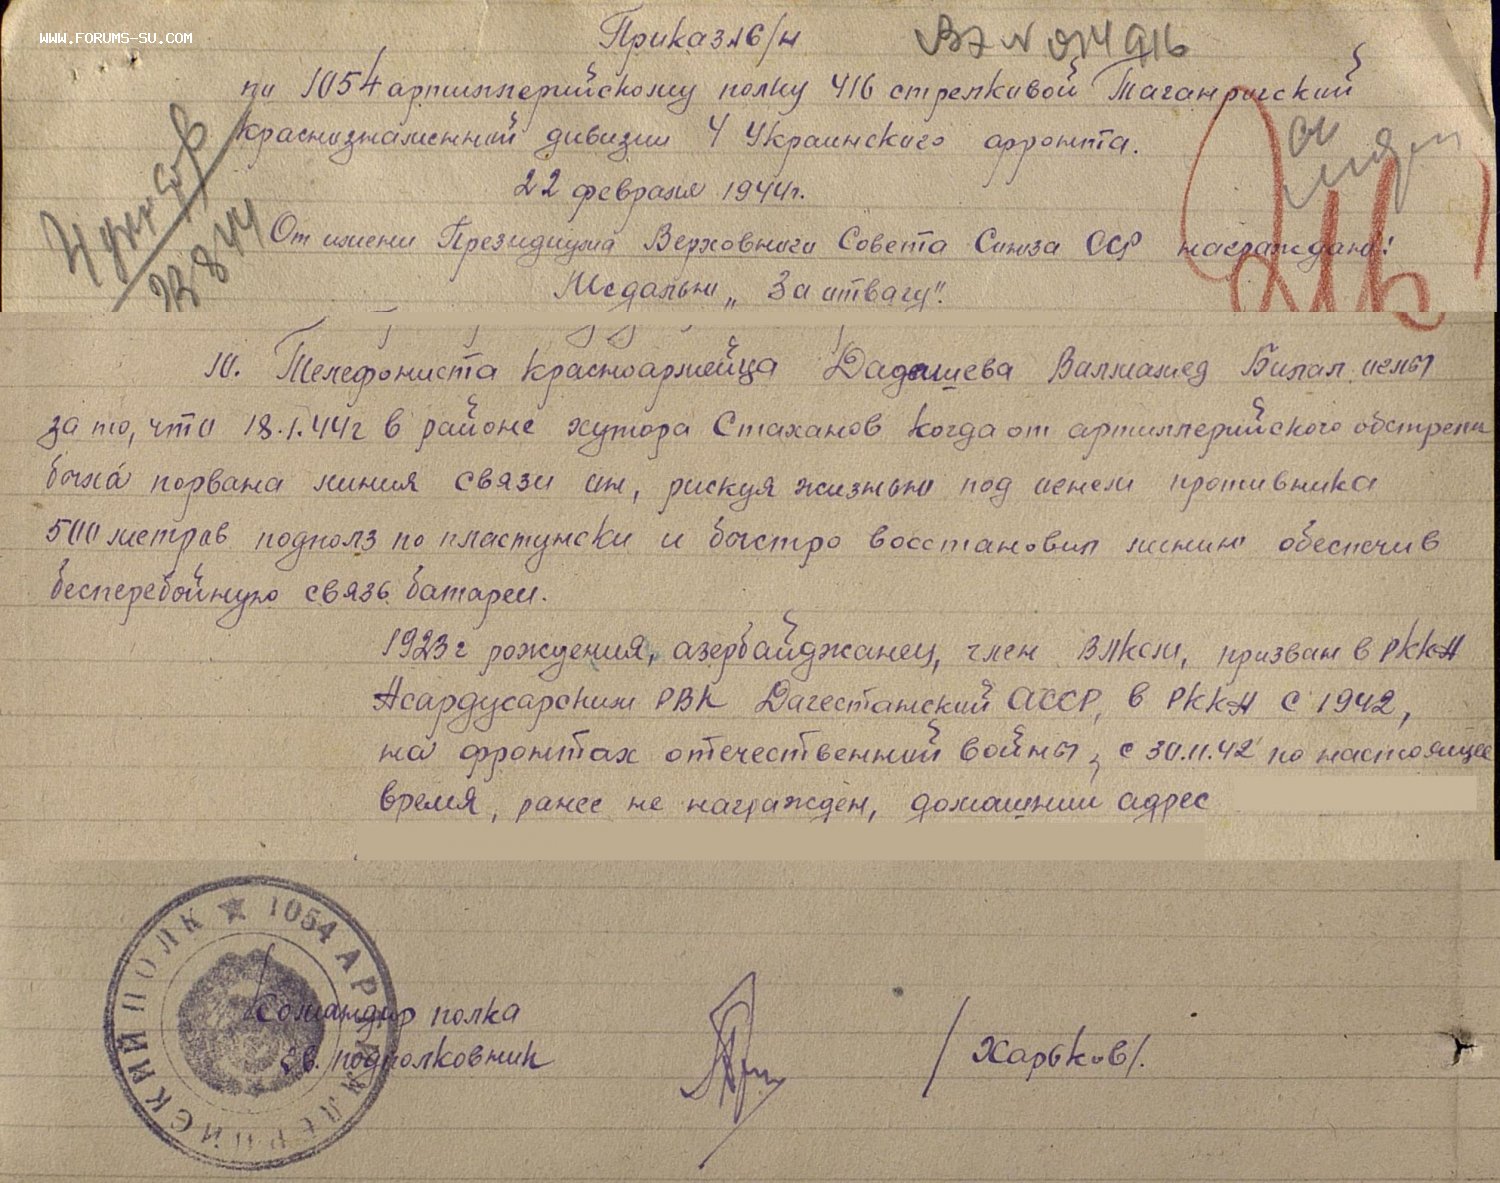 WWW.FORUMS-SU.COM
Приказ № б/н
по 1054 артиллерийскому полку 416 стрелковой Таганрогской
краснознаменной дивизии 4 Украинского фронта.
22 февраля 1944г.
От имени Президиума Верховного Совета Союза ССР награждаю:
Медалью „За отвагу".
10. Телефониста красноармейца Дадашева Валмамед Билал оглы
за то, что 18.1.44г в районе хутора Стаханов когда от артиллерийского обстрела
была порвана линия связи он, рискуя жизнью под огнем противника
500 метров подполз по пластунски и быстро восстановил линию обеспечив
бесперебойную связь батареи.
1923г рождения, азербайджанец, член ВЛКСМ, призван в РККА
РВК Дагестанской АССР, в РККА с 1942,
на фронтах отечественной войны, с 30.11.42 по настоящее
время, ранее не награжден, домашний адрес
1054 АРТИЛЛЕРИЙСКИЙ ПОЛК
Командир полка
гв. подполковник /Харьков/.